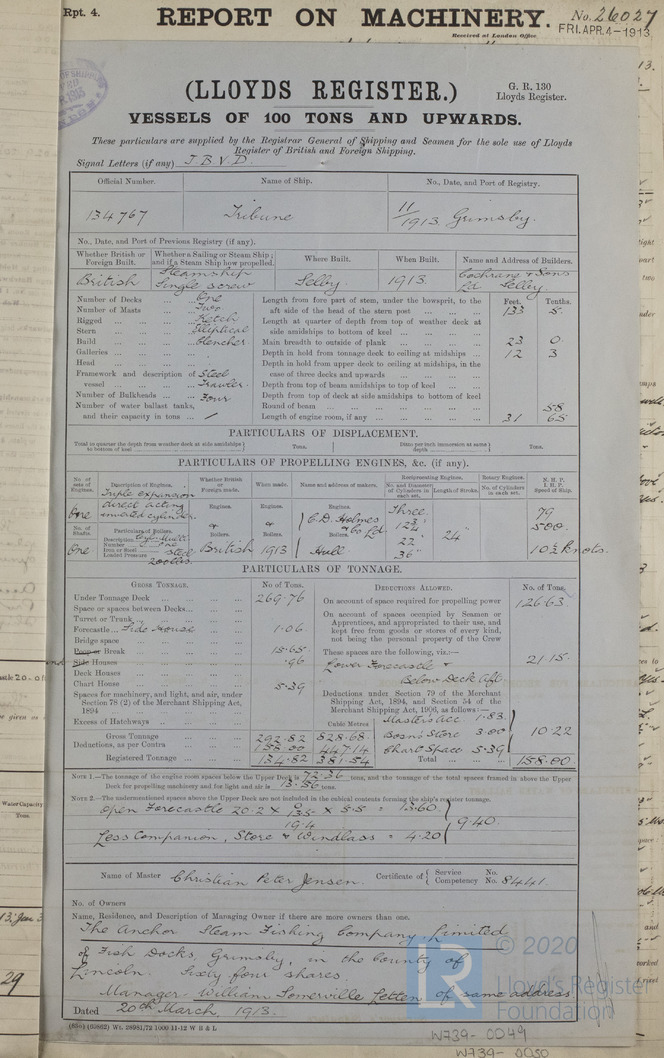 Rpt. 4.
REPORT ON MACHINERY.
No. 26027
Received at London Office
FRI. APR. 4 - 1913
(LLOYDS REGISTER.)
G. R. 130
Lloyds Register.
VESSELS OF 100 TONS AND UPWARDS.
These particulars are supplied by the Registrar General of Shipping and Seamen for the sole use of Lloyds
Register of British and Foreign Shipping.
Signal Letters (if any) J B V D
Official Number. Name of Ship. No., Date, and Port of Registry.
134767 Tribune 11/1913 Grimsby.
No., Date, and Port of Previous Registry (if any).
Whether British or Foreign Built. Whether a Sailing or Steam Ship; and if a Steam Ship how propelled. Where Built. When Built. Name and Address of Builders.
British Steamship Single screw Selby. 1913. Cochrane & Sons Ld Selby
Number of Decks One
Number of Masts Two
Rigged Ketch
Stern Elliptical
Build Clencher
Galleries
Head
Framework and description of vessel Steel Trawler.
Number of Bulkheads Four
Number of water ballast tanks, and their capacity in tons /
Feet. Tenths.
Length from fore part of stem, under the bowsprit, to the aft side of the head of the stern post 133 5
Length at quarter of depth from top of weather deck at side amidships to bottom of keel
Main breadth to outside of plank 23 0
Depth in hold from tonnage deck to ceiling at midships 12 3
Depth in hold from upper deck to ceiling at midships, in the case of three decks and upwards
Depth from top of beam amidships to top of keel
Depth from top of deck at side amidships to bottom of keel
Round of beam 58
Length of engine room, if any 31 65
PARTICULARS OF DISPLACEMENT.
Total to quarter the depth from weather deck at side amidships to bottom of keel Tons. Ditto per inch immersion at same depth Tons.
PARTICULARS OF PROPELLING ENGINES, &c. (if any).
No. of sets of Engines. Description of Engines. Whether British or Foreign made. When made. Name and address of makers. Reciprocating Engines. Rotary Engines. N. H. P. I. H. P. Speed of Ship.
No. and Diameter of Cylinders in each set. Length of Stroke. No. of Cylinders in each set.
One Triple expansion direct acting inverted cylinder. Engines. Engines. Engines. Three 79
No. of Shafts. Particulars of Boilers. Boilers. Boilers. Boilers. 500
Description Cyl. Mult.
Number One
Iron or Steel Steel
Loaded Pressure 200 lbs.
One British 1913 C.D. Holmes & Co Ld. Hull 22" 36" 24" 10½ knots.
PARTICULARS OF TONNAGE.
GROSS TONNAGE. No. of Tons. DEDUCTIONS ALLOWED. No. of Tons.
Under Tonnage Deck 269.76
Space or spaces between Decks
Turret or Trunk
Forecastle Side House 1.06
Bridge space
Poop or Break 15.65
Side Houses .96
Deck Houses
Chart House 5.39
Spaces for machinery, and light, and air, under Section 78 (2) of the Merchant Shipping Act, 1894
Excess of Hatchways
Cubic Metres
Gross Tonnage 292.82 828.68
Deductions, as per Contra 158.00 447.14
Registered Tonnage 134.82 381.54
On account of space required for propelling power 126.63
On account of spaces occupied by Seamen or Apprentices, and appropriated to their use, and kept free from goods or stores of every kind, not being the personal property of the Crew
These spaces are the following, viz.:—
Lower Forecastle & Below Deck Aft 21.15
Deductions under Section 79 of the Merchant Shipping Act, 1894, and Section 54 of the Merchant Shipping Act, 1906, as follows:—
Masters Acc. 1.83
Bosn's Store 3.00
Chart Space 5.39
10.22
Total 158.00
NOTE 1.—The tonnage of the engine room spaces below the Upper Deck is 72.36 tons, and the tonnage of the total spaces framed in above the Upper
Deck for propelling machinery and for light and air is 13.56 tons.
NOTE 2.—The undermentioned spaces above the Upper Deck are not included in the cubical contents forming the ship's register tonnage.
Open Forecastle 20.2 x x 5.5 = 13.60
Less Companion, Store & Windlass = 4.20
9.40
Name of Master Christian Peter Jensen. Certificate of Service Competency No. No. 8441.
No. of Owners
Name, Residence, and Description of Managing Owner if there are more owners than one.
The Anchor Steam Fishing Company, Limited
of Fish Docks, Grimsby, in the County of
Lincoln. Sixty four shares
Manager. William Somerville Letten of same address
Dated 20th March, 1913.
(655) (63862) Wt. 28981/72 1000 11-12 W B & L
LR
© 2020
Lloyd's Register
Foundation
W739-0049
W739-0050
Water Capacity
Tons.
29